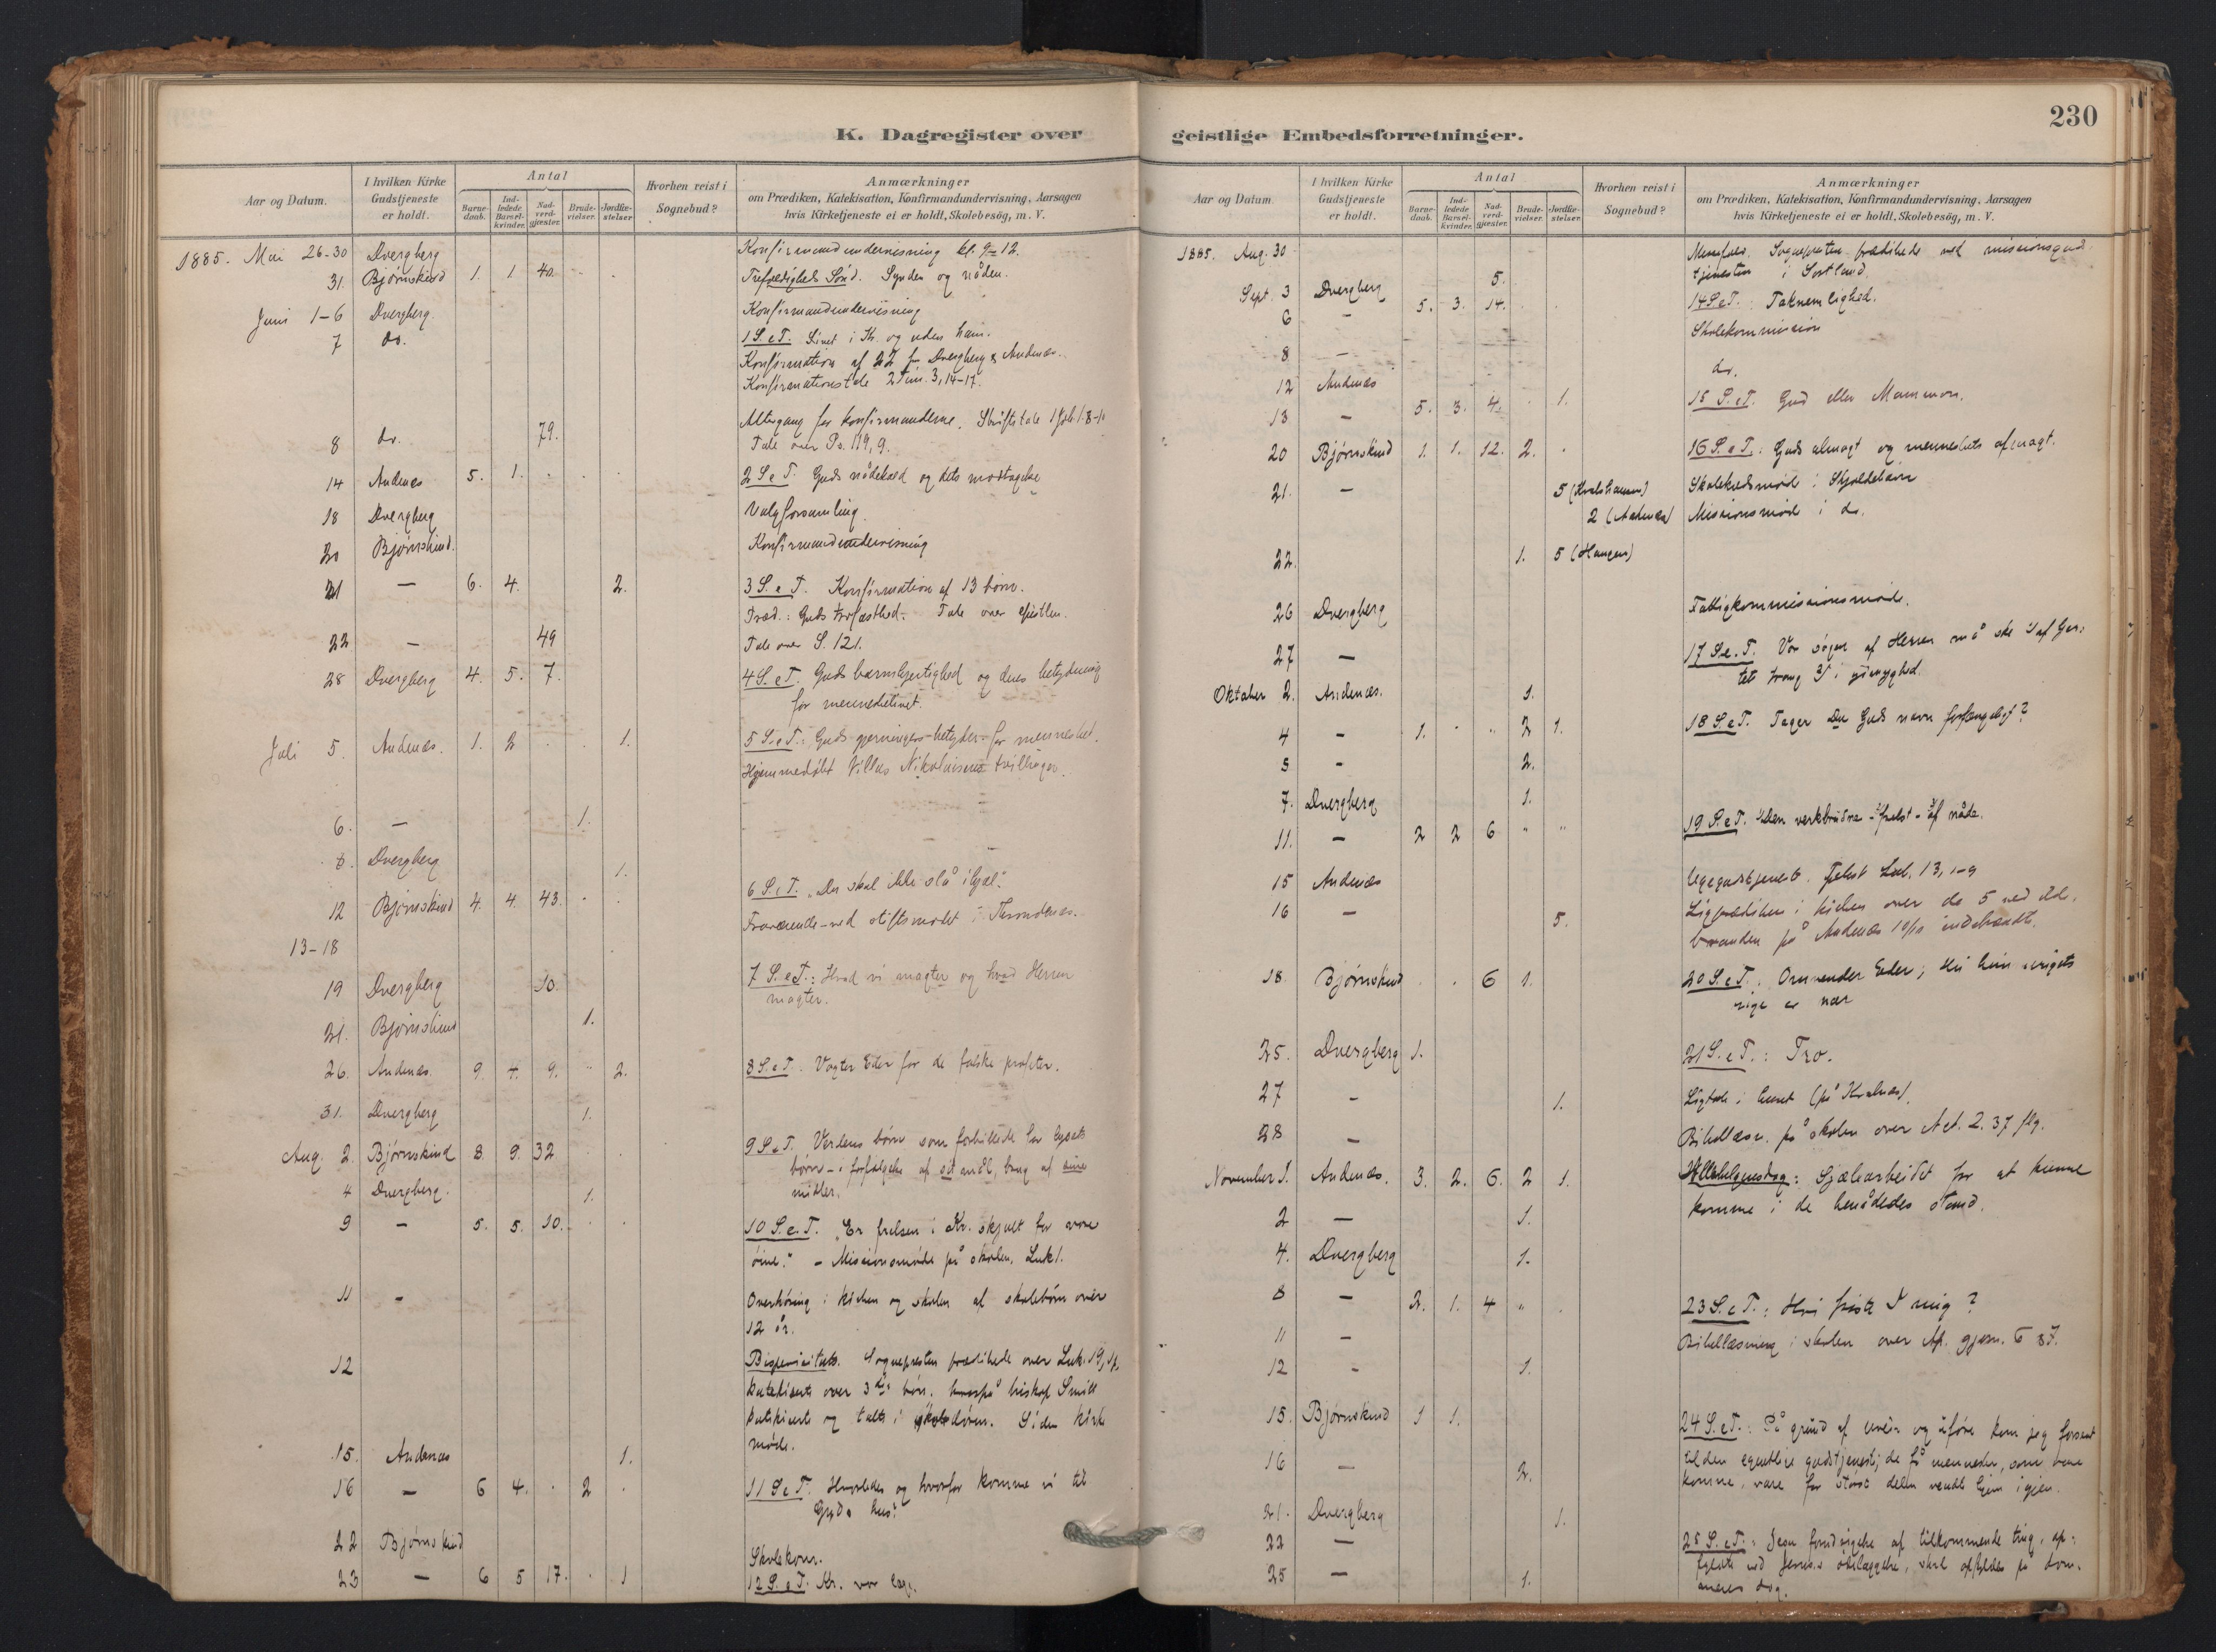 230
K. Dagregister over geistlige Embedsforretninger.
Aar og Datum.
I hvilken Kirke Gudstjeneste er holdt.
Antal
Barne-daab.
Ind-ledede Barsel-kvinder.
Nad-verd-gjester.
Brude-vielser.
Jordfæ-stelser
Hvorhen reist i Sognebud?
Anmærkninger
om Prædiken, Katekisation, Konfirmandundervisning, Aarsagen
hvis Kirketjeneste ei er holdt, Skolebesög, m. V.
1885. Mai 26-30 Dvergberg Konfirmandundervisning kl. 9-12.
31. Bjørnskind 1. 1 40. Trefoldigheds Sønd. Synden og nåden.
Juni 1-6 Dvergberg. Konfirmandundervisning
7 do. 1 S.e.T. Livet i Kr. og uden ham.
Konfirmation af 22 fra Dvergberg & Andenæs.
Konfirmationstale 2 Tim. 3, 14-17.
Altergang for konfirmanderne. Skriftetale 1 Joh 1. 8-10
8 do. 79. Tale over Ps. 119, 9.
14 Andenæs 5. 1. 2 S e T. Guds nådekald og dets modtagelse
18 Dvergberg Valgforsamling
20 Bjørnskind. Konfirmandundervisning
21 — 6. 4. 2. 3 S. e T. Konfirmation af 13 børn.
Præd.: Guds trofasthed. Tale over epistlen.
22 — 49 Tale over S. 121.
28 Dvergberg 4. 5. 7. 4 S. eT. Guds barmhjertighed og dens betydning
for menneskelivet.
Juli 5. Andenæs. 1. 2 1. 5 S.e T.: Guds gjerningers betyden for mennesket.
Hjemmedøbt Villas Nikolaisens tvillinger.
6. — 1.
8. Dvergberg 1.
12 Bjørnskind 4. 4. 43. 6 S. e T. "Du skal ikke slå ihjel."
13-18 Fraværende ved stiftsmødet i Throndenæs.
19 Dvergberg 10. 7 S. e T.: Hvad vi magter og hvad Herren
magter.
21. Bjørnskind 1.
26. Andenæs. 9. 4. 9. 2. 8 S.e T. Vogter Eder for de falske profeter.
31. Dvergberg 1.
Aug. 2. Bjørnskind 8. 9. 32 9 S. e T. Verdens børn som forbillede for lysets
børn - i forfølgelse af sit mål, brug af sine
midler.
4 Dvergberg. 1.
9 — 5. 5. 10. 10 S. e. T. "Er frelsen i Kr. skjult for vore
øine." - Missionsmøde på skolen, Luk 1.
11 - Overhøring i kirken og skolen af skolebørn over
12 år.
12 Bispevisitats. Sognepresten prædikede over Luk. 19,
katekiserte over 3 børn. hvorpå biskop Smitt
katekiserte og talte i Siden kirke
møde.
15. Andenæs 1.
16 — 6 4. 2 11 S e T. Hvorledes og hvorfor komme vi til
Guds hus?
22 Bjørnskind Skolekom.
23 — 6 5 17. 1 12 S. e T. Kr. vor læge.
1885. Aug. 30 Sognepresten prædikede ved missionsgud-
tjenesten i Sortland.
Sept. 3 Dvergberg 5.
6 — 5. 3. 14. 14 S e T.: Taknemlighed.
8 — Skolekommission
12 Andenæs do.
13 — 5. 3. 4. 1. 15 S. e T. Gud eller Mammon.
20 Bjørnskind 1. 1. 12. 2. 16 S. e T.: Guds almagt og menneskets afmagt.
21. — 5 (Kvalshausen) Skolekredsmøde i Skjoldehavn
2 (Andenæs) Missionsmøde i do.
22. 1. 5 (Haugen)
26 Dvergberg Fattigkommissionsmøde.
27 — 17 S.e. T. Vor søgen af Herren må ske af hjer-
tet trang i ydmyghed.
Oktober 2. Andenæs. 1.
4 - 1. 2 1. 18 S. e T. Tager Du Guds navn forfængeligt?
5 - 2.
7. Dvergberg 1.
11. — 2 2 6 19 S. e T. Den verkbrudne - frelst - af nåde.
15 Andenæs Ugegudstjeneste. Tekst Luk. 13, 1-9
16 — 5. Ligprædiken i kirken over de 5 ved ilde-
branden på Andenæs 10/10 indebrændte.
18. Bjørnskind 6 1. 20 S. e T.: Omvender Eder; thi himmerigets
rige er nær
25. Dvergberg 1. 21 S. e T.: Tro.
27 - 1. Ligtale i huset (på Kvalnæs).
28 — Bibellæsn. på skolen over Act. 2. 37 flg.
November 1. Andenæs. 3. 2. 6. 2 1. Allehelgensdag: Sjælearbeidet for at kunne
komme i de benådedes stand.
2 — 1.
4. Dvergberg 1.
8 — 2. 1. 4 23 S. e T.: Hvi friste I mig?
11 - Bibellæsning i skolen over Ap. gjern. 6 &7.
12 - 1.
15. Bjørnskind 1 1. 24 S. e T.: På grund af uveir og uføre kom jeg forsent
til den egentlige gudstjeneste; de få mennesker, som vare
komne, vare for største delen vendt hjem igjen.
16 — 2.
21. Dvergberg 1.
22 — 25 S. e T.: Jesu forudsigelse af tilkommende ting, op-
fyldte ved Jerus.s ødelæggelse, skal opfyldes på dom-
menes dag.
25 — 1.